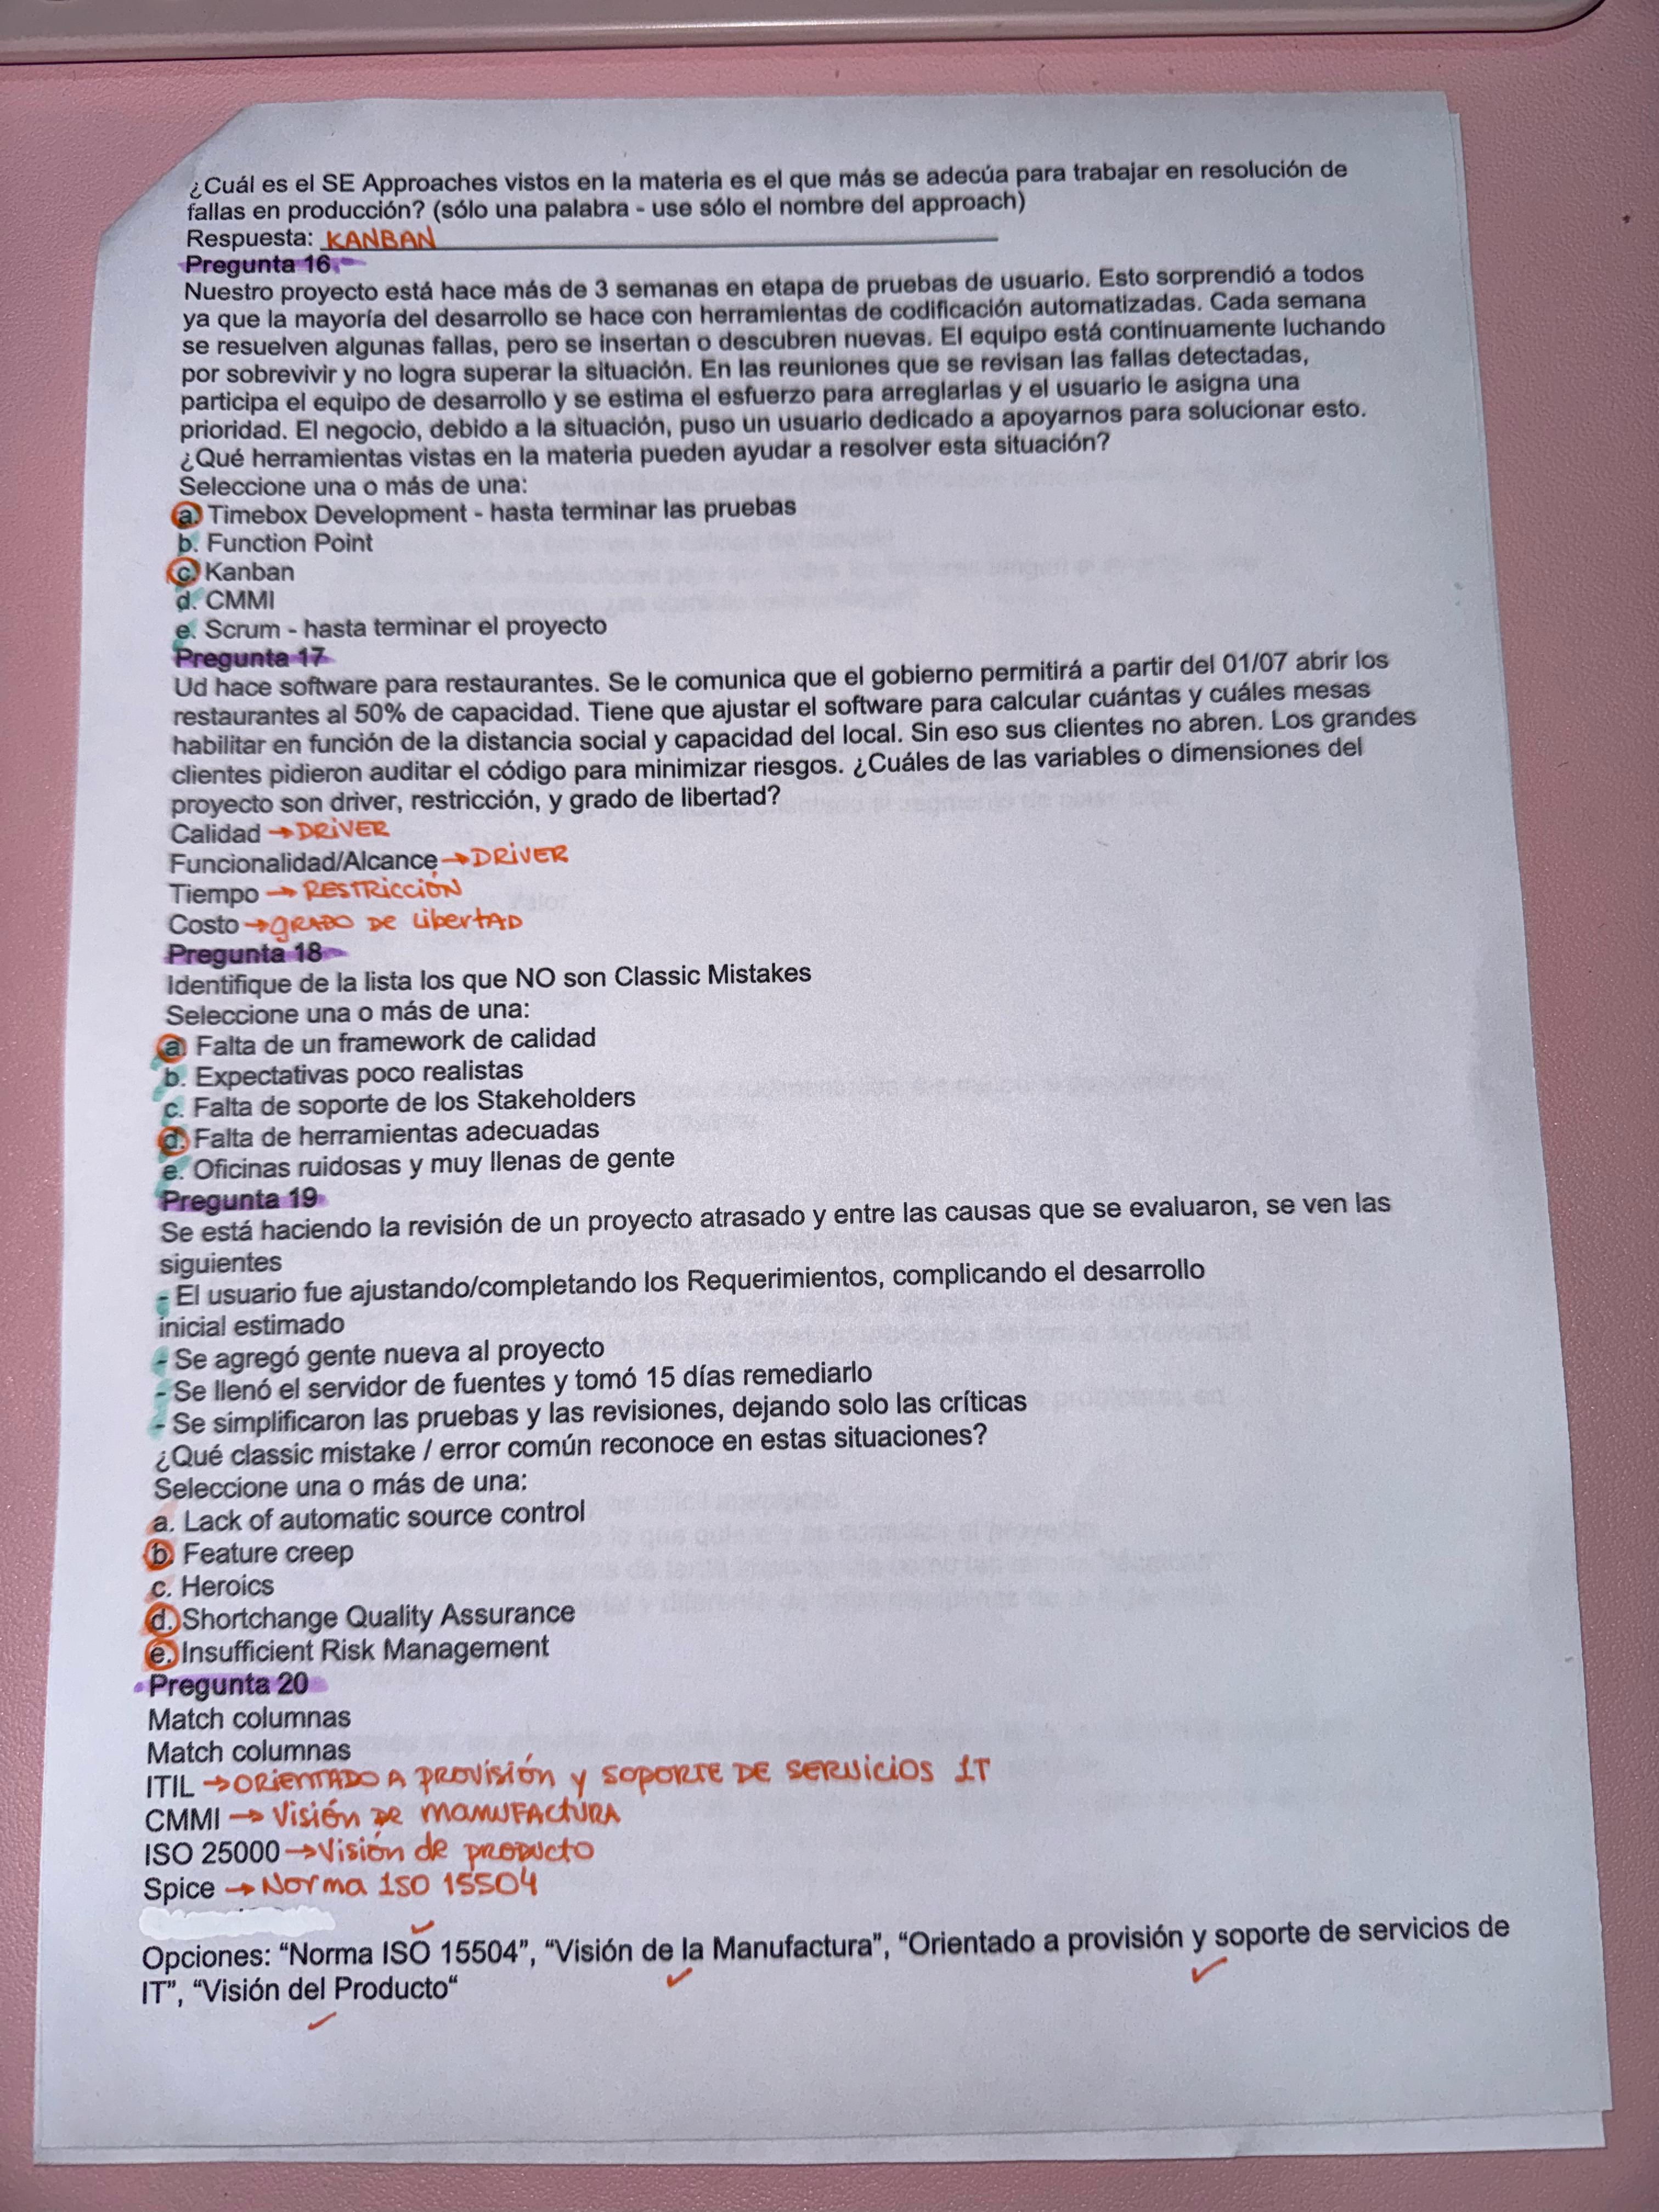 ¿Cuál es el SE Approaches vistos en la materia es el que más se adecúa para trabajar en resolución de
fallas en producción? (sólo una palabra - use sólo el nombre del approach)
Respuesta: KANBAN
Pregunta 16
Nuestro proyecto está hace más de 3 semanas en etapa de pruebas de usuario. Esto sorprendió a todos
ya que la mayoría del desarrollo se hace con herramientas de codificación automatizadas. Cada semana
se resuelven algunas fallas, pero se insertan o descubren nuevas. El equipo está continuamente luchando
por sobrevivir y no logra superar la situación. En las reuniones que se revisan las fallas detectadas,
participa el equipo de desarrollo y se estima el esfuerzo para arreglarlas y el usuario le asigna una
prioridad. El negocio, debido a la situación, puso un usuario dedicado a apoyarnos para solucionar esto.
¿Qué herramientas vistas en la materia pueden ayudar a resolver esta situación?
Seleccione una o más de una:
a. Timebox Development - hasta terminar las pruebas
b. Function Point
c. Kanban
d. CMMI
e. Scrum - hasta terminar el proyecto
Pregunta 17
Ud hace software para restaurantes. Se le comunica que el gobierno permitirá a partir del 01/07 abrir los
restaurantes al 50% de capacidad. Tiene que ajustar el software para calcular cuántas y cuáles mesas
habilitar en función de la distancia social y capacidad del local. Sin eso sus clientes no abren. Los grandes
clientes pidieron auditar el código para minimizar riesgos. ¿Cuáles de las variables o dimensiones del
proyecto son driver, restricción, y grado de libertad?
Calidad → DRIVER
Funcionalidad/Alcance → DRIVER
Tiempo → RESTRICCIÓN
Costo → GRADO DE LIBERTAD
Pregunta 18
Identifique de la lista los que NO son Classic Mistakes
Seleccione una o más de una:
a. Falta de un framework de calidad
b. Expectativas poco realistas
c. Falta de soporte de los Stakeholders
d. Falta de herramientas adecuadas
e. Oficinas ruidosas y muy llenas de gente
Pregunta 19
Se está haciendo la revisión de un proyecto atrasado y entre las causas que se evaluaron, se ven las
siguientes
- El usuario fue ajustando/completando los Requerimientos, complicando el desarrollo
inicial estimado
- Se agregó gente nueva al proyecto
- Se llenó el servidor de fuentes y tomó 15 días remediarlo
- Se simplificaron las pruebas y las revisiones, dejando solo las críticas
¿Qué classic mistake / error común reconoce en estas situaciones?
Seleccione una o más de una:
a. Lack of automatic source control
b. Feature creep
c. Heroics
d. Shortchange Quality Assurance
e. Insufficient Risk Management
Pregunta 20
Match columnas
Match columnas
ITIL → ORIENTADO A PROVISIÓN Y SOPORTE DE SERVICIOS IT
CMMI → VISIÓN DE MANUFACTURA
ISO 25000 → VISIÓN DE PRODUCTO
Spice → NORMA ISO 15504
Opciones: “Norma ISO 15504”, “Visión de la Manufactura”, “Orientado a provisión y soporte de servicios de
IT”, “Visión del Producto“